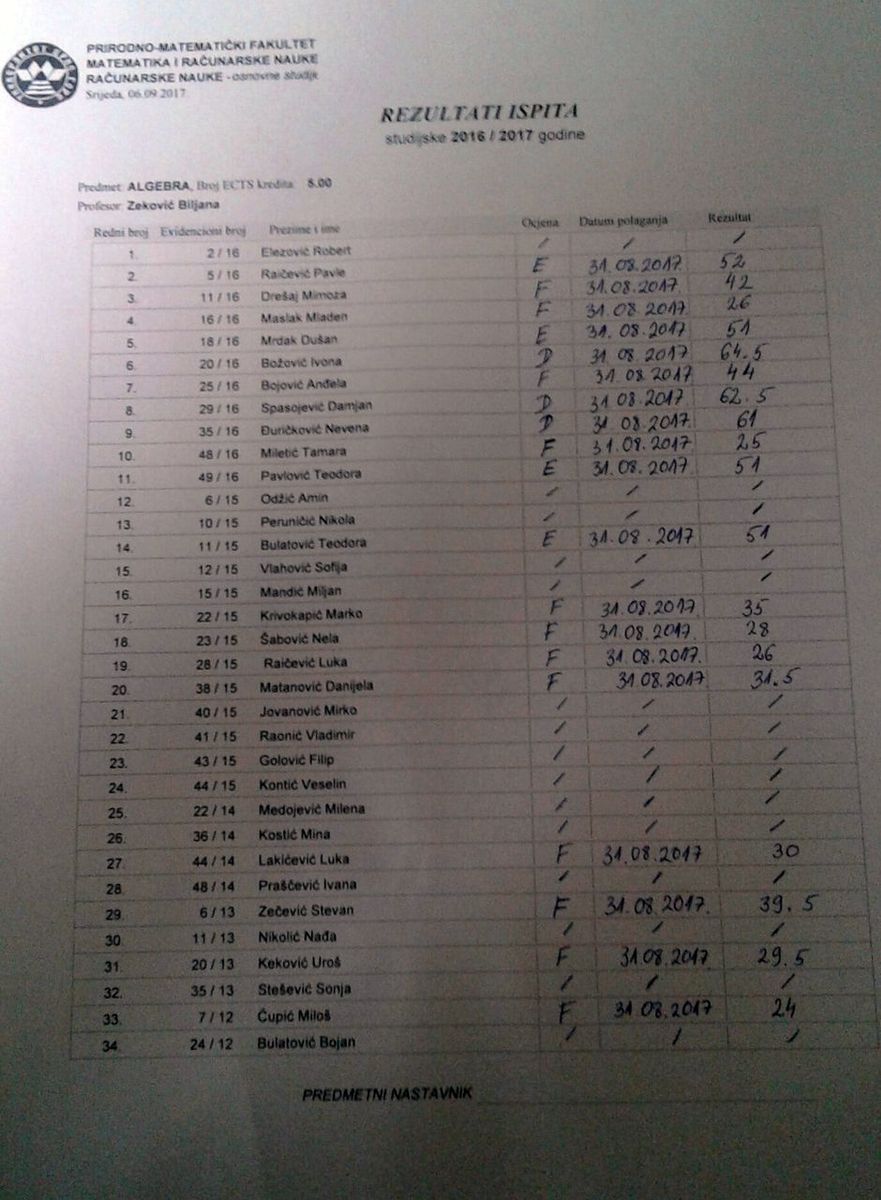 PRIRODNO-MATEMATIČKI FAKULTET
MATEMATIKA I RAČUNARSKE NAUKE
RAČUNARSKE NAUKE - osnovne studije
Srijeda, 06.09.2017.
REZULTATI ISPITA
studijske 2016 / 2017 godine
Predmet: ALGEBRA, Broj ECTS kredita: 8.00
Profesor: Zeković Biljana
Redni broj Evidencioni broj Prezime i ime Ocjena Datum polaganja Rezultat
1. 2 / 16 Elezović Robert / / /
2. 5 / 16 Raičević Pavle E 31.08.2017. 52
3. 11 / 16 Drešaj Mimoza F 31.08.2017. 42
4. 16 / 16 Maslak Mladen F 31.08.2017. 26
5. 18 / 16 Mrdak Dušan E 31.08.2017. 51
6. 20 / 16 Božović Ivona D 31.08.2017. 64.5
7. 25 / 16 Bojović Anđela F 31.08.2017 44
8. 29 / 16 Spasojević Damjan D 31.08.2017. 62.5
9. 35 / 16 Đuričković Nevena D 31.08.2017. 61
10. 48 / 16 Miletić Tamara F 31.08.2017. 25
11. 49 / 16 Pavlović Teodora E 31.08.2017. 51
12. 6 / 15 Odžić Amin / / /
13. 10 / 15 Peruničić Nikola / / /
14. 11 / 15 Bulatović Teodora E 31.08.2017. 51
15. 12 / 15 Vlahović Sofija / / /
16. 15 / 15 Mandić Miljan / / /
17. 22 / 15 Krivokapić Marko F 31.08.2017. 35
18. 23 / 15 Šabović Nela F 31.08.2017. 28
19. 28 / 15 Raičević Luka F 31.08.2017. 26
20. 38 / 15 Matanović Danijela F 31.08.2017. 31.5
21. 40 / 15 Jovanović Mirko / / /
22. 41 / 15 Raonić Vladimir / / /
23. 43 / 15 Golović Filip / / /
24. 44 / 15 Kontić Veselin / / /
25. 22 / 14 Medojević Milena / / /
26. 36 / 14 Kostić Mina / / /
27. 44 / 14 Lakićević Luka F 31.08.2017 30
28. 48 / 14 Praščević Ivana / / /
29. 6 / 13 Zečević Stevan F 31.08.2017. 39.5
30. 11 / 13 Nikolić Nađa / / /
31. 20 / 13 Keković Uroš F 31.08.2017 29.5
32. 35 / 13 Stešević Sonja / / /
33. 7 / 12 Čupić Miloš F 31.08.2017 24
34. 24 / 12 Bulatović Bojan / / /
PREDMETNI NASTAVNIK